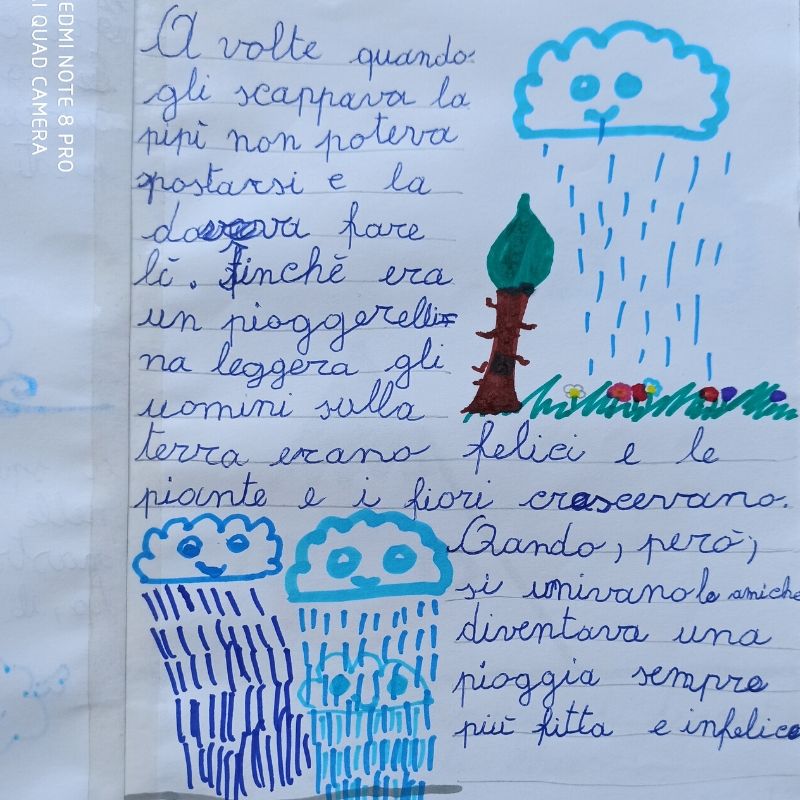 A volte quando
gli scappava la
pipì non poteva
spostarsi e la
doveva fare
lì. finchè era
un pioggerelli=
na leggera gli
uomini sulla
terra erano felici e le
piante e i fiori crescevano.
Qando, però,
si univano le amiche
diventava una
pioggia sempre
più fitta e infelice
EDMI NOTE 8 PRO
I QUAD CAMERA